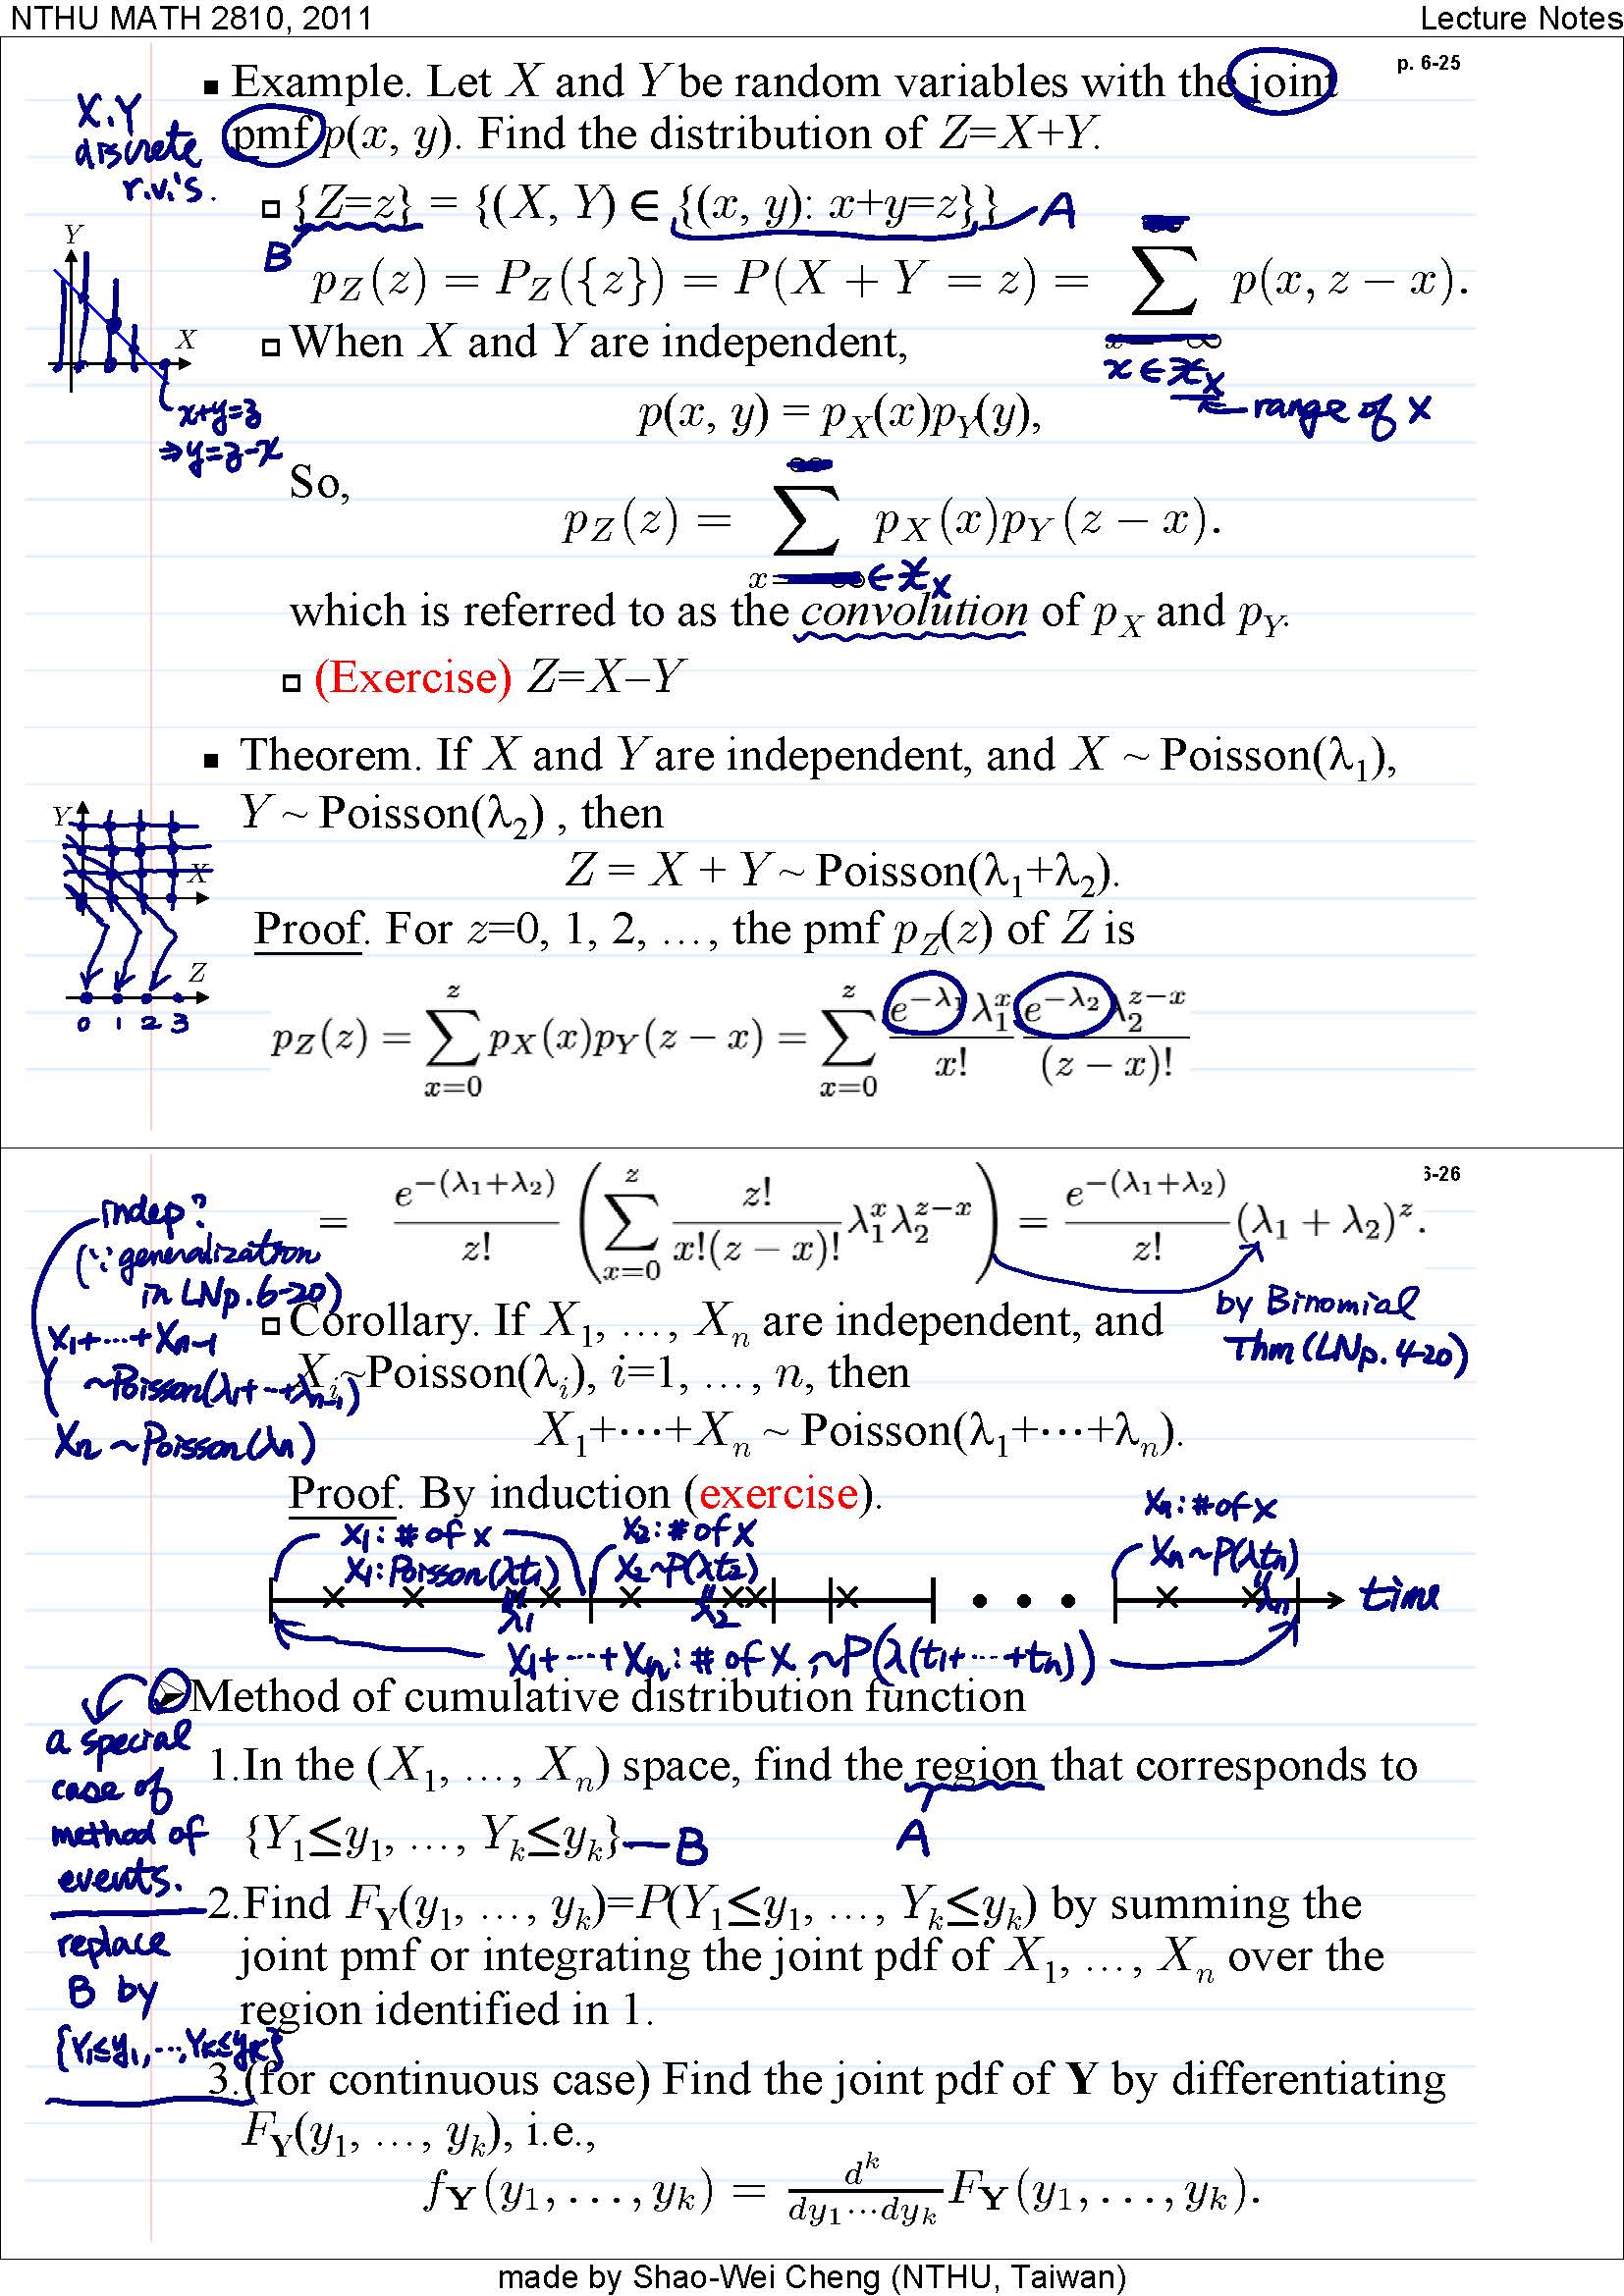 NTHU MATH 2810, 2011
Lecture Notes
p. 6-25
▪ Example. Let X and Y be random variables with the joint
pmf p(x, y). Find the distribution of Z=X+Y.
X.Y
discrete
r.v.'s.
□ {Z=z} = {(X, Y) ∈ {(x, y): x+y=z}}
A
B
p_Z(z) = P_Z({z}) = P(X + Y = z) = ∑ p(x, z − x).
x ∈ 𝒳_X
← range of X
Y
X
x+y=z
⇒y=z-x
□ When X and Y are independent,
p(x, y) = p_X(x)p_Y(y),
So,
p_Z(z) = ∑ p_X(x)p_Y(z − x).
x ∈ 𝒳_X
which is referred to as the convolution of p_X and p_Y.
□ (Exercise) Z=X–Y
▪ Theorem. If X and Y are independent, and X ~ Poisson(λ₁),
Y ~ Poisson(λ₂) , then
Z = X + Y ~ Poisson(λ₁+λ₂).
Y
X
Z
0 1 2 3
Proof. For z=0, 1, 2, …, the pmf p_Z(z) of Z is
p_Z(z) = ∑_{x=0}^{z} p_X(x)p_Y(z − x) = ∑_{x=0}^{z} \frac{e^{−λ₁}λ₁^x}{x!} \frac{e^{−λ₂}λ₂^{z−x}}{(z − x)!}
6-26
= \frac{e^{−(λ₁+λ₂)}}{z!} (∑_{x=0}^{z} \frac{z!}{x!(z − x)!} λ₁^x λ₂^{z−x}) = \frac{e^{−(λ₁+λ₂)}}{z!} (λ₁ + λ₂)^z.
by Binomial
Thm (LNp. 4-20)
indep?
(∵ generalization
in LNp. 6-20)
X₁+⋯+Xₙ₋₁
~Poisson(λ₁+⋯+λₙ₋₁)
Xₙ ~Poisson(λₙ)
□ Corollary. If X₁, …, Xₙ are independent, and
Xᵢ~Poisson(λᵢ), i=1, …, n, then
X₁+⋯+Xₙ ~ Poisson(λ₁+⋯+λₙ).
Proof. By induction (exercise).
X₁: # of x
X₂: # of x
Xₙ: # of x
X₁: Poisson(λt₁)
X₂~P(λt₂)
Xₙ~P(λtₙ)
λ₁
λ₂
λₙ
time
X₁+⋯+Xₙ: # of x, ~P(λ(t₁+⋯+tₙ))
➢ Method of cumulative distribution function
a special
case of
method of
events.
replace
B by
{Y₁≤y₁,⋯,Yₖ≤yₖ}
1.In the (X₁, …, Xₙ) space, find the region that corresponds to
{Y₁≤y₁, …, Yₖ≤yₖ} — B
A
2.Find F_𝐘(y₁, …, yₖ)=P(Y₁≤y₁, …, Yₖ≤yₖ) by summing the
joint pmf or integrating the joint pdf of X₁, …, Xₙ over the
region identified in 1.
3.(for continuous case) Find the joint pdf of 𝐘 by differentiating
F_𝐘(y₁, …, yₖ), i.e.,
f_𝐘(y₁, …, yₖ) = \frac{d^k}{dy₁⋯dyₖ} F_𝐘(y₁, …, yₖ).
made by Shao-Wei Cheng (NTHU, Taiwan)